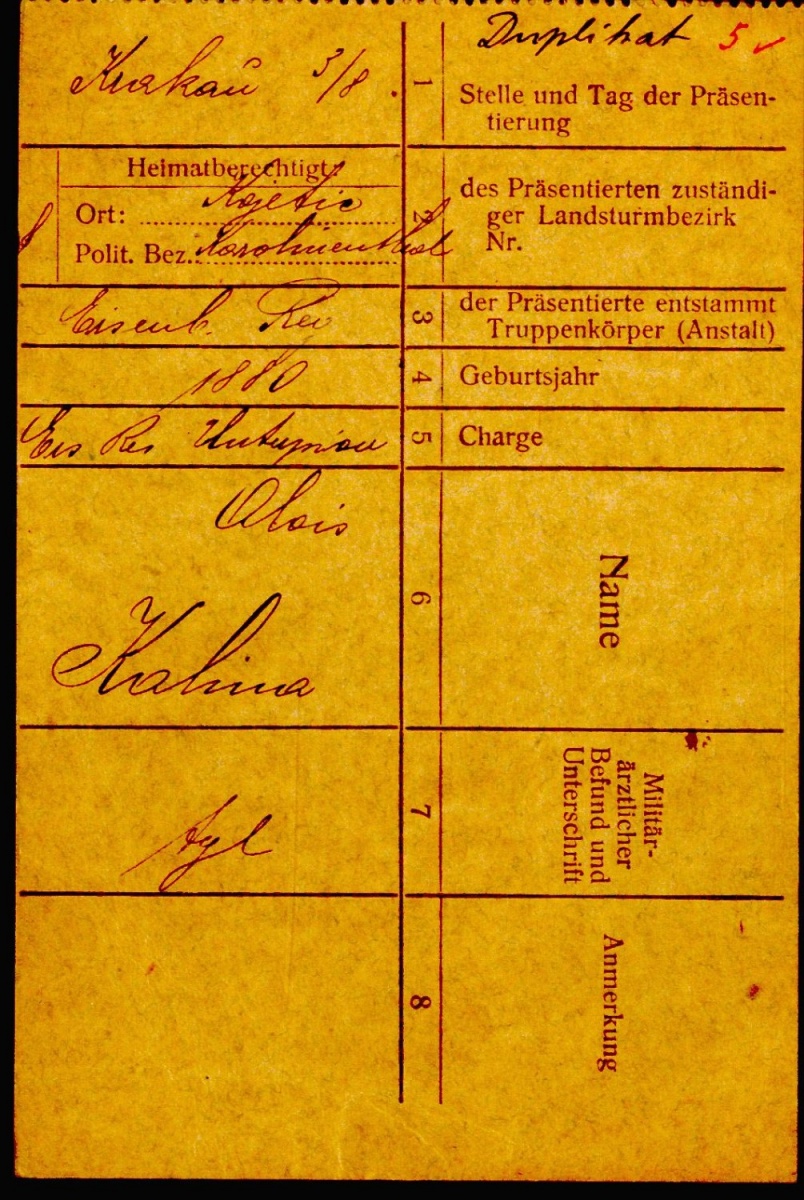 Duplikat 5
Krakau 3/8.
1
Stelle und Tag der Präsen-
tierung
Heimatberechtigt:
Ort: Kojetic
Polit. Bez. Karolinenthal
2
des Präsentierten zuständi-
ger Landsturmbezirk
Nr.
Eisenb.
3
der Präsentierte entstammt
Truppenkörper (Anstalt)
1880
4
Geburtsjahr
Eis
5
Charge
Alois
Kalina
6
Name
7
Militär-
ärztlicher
Befund und
Unterschrift
8
Anmerkung